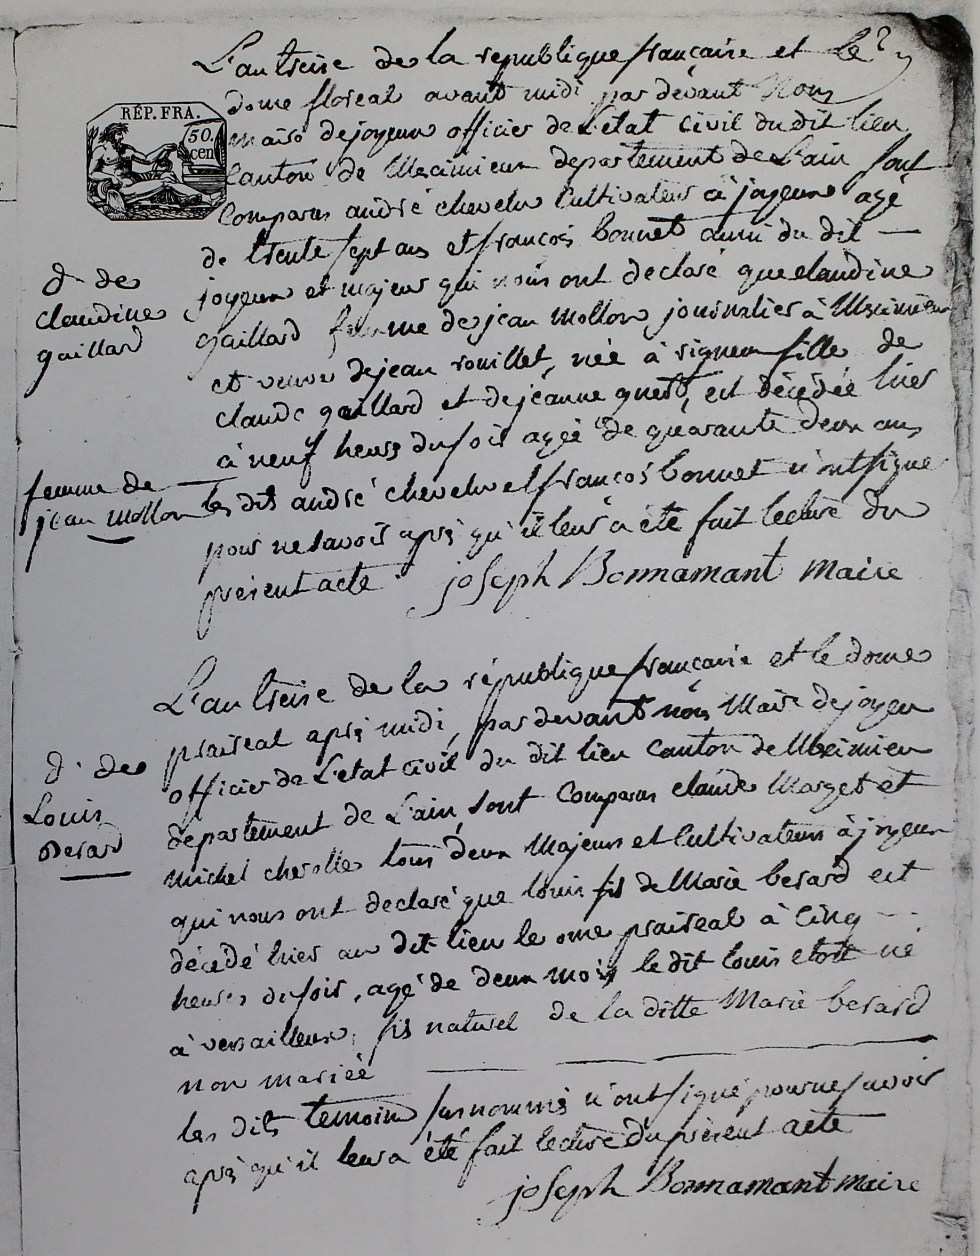 L'an treise de la république française et le
dome floreal avant midi par devant Nous
maire de joyeux officier de L'etat civil du dit lieu
RÉP. FRA.
50.
cen
Canton de Meximieux departement de L'ain sont
Comparus andré chevelu Cultivateur à joyeux agé
de trente sept ans et françois bonnet aussi du dit
d. de
claudine
gaillard
joyeux et majeur qui nous ont declaré que claudine
gaillard femme de jean mollon journalier à Meximieux
et veuve de jean rouillet, née à rigneux fille de
claude gaillard et de jeanne est décédée hier
à neuf heure du soir agée de quarante deux ans
femme de
jean mollon
les dits andré chevelu et françois bonnet n'ont signé
pour ne savoir après qu'il leur a été fait lecture du
présent acte joseph Bonnamant maire
L'an treise de la république française et le dome
praireal après midi, par devant nous Maire de joyeux
d. de
Louis
Berard
officier de L'etat civil du dit lieu Canton de Meximieux
département de L'ain, sont Comparus claude Marget et
michel tous deux Majeurs et Cultivateurs à joyeux
qui nous ont declaré que louis fils de Marie berard est
décédé hier au dit lieu le onze praireal à Cinq
heures du soir, agé de deux mois le dit louis etoit né
à versailleux, fils naturel de la ditte Marie berard
non mariée
les dits temoins susnommés n'ont signé pour ne savoir
après qu'il leur a été fait lecture du présent acte
joseph Bonnamant maire